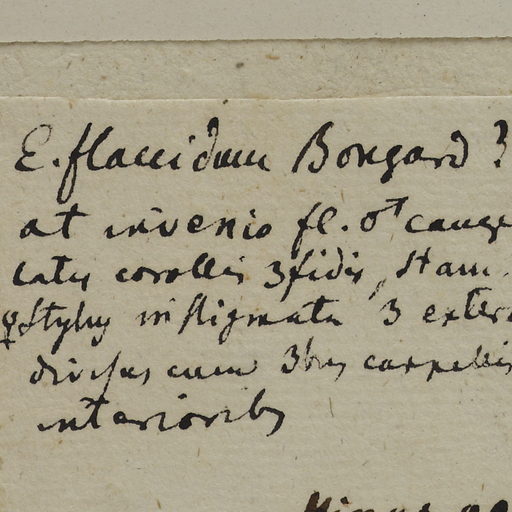 E. flaccidum Bongard ?
at invenio fl. ♂ cauge
latis corollis 3fidis, stam.
♀ Stylus in stigmata 3 exter
divisus cum 3bus carpellis
interioribus
Minus